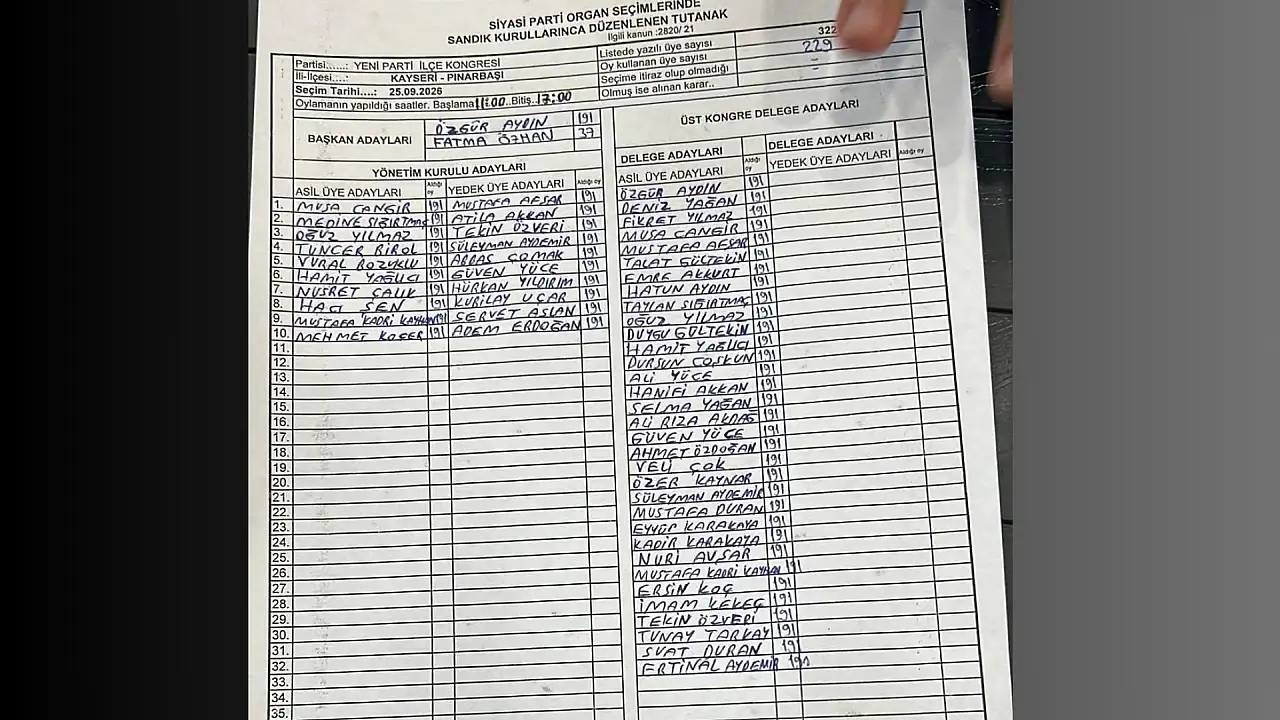 SİYASİ PARTİ ORGAN SEÇİMLERİNDE
SANDIK KURULLARINCA DÜZENLENEN TUTANAK
İlgili kanun :2820/ 21
Partisi.....: YENİ PARTİ İLÇE KONGRESİ
İli-İlçesi....: KAYSERİ - PINARBAŞI
Seçim Tarihi....: 25.09.2026
Oylamanın yapıldığı saatler. Başlama 11:00..Bitiş.17:00
Listede yazılı üye sayısı 322
Oy kullanan üye sayısı 229
Seçime itiraz olup olmadığı -
Olmuş ise alınan karar.. -
BAŞKAN ADAYLARI
ÖZGÜR AYDIN 191
FATMA ÖZHAN 37
YÖNETİM KURULU ADAYLARI
ASİL ÜYE ADAYLARI Aldığı oy YEDEK ÜYE ADAYLARI Aldığı oy
1. MUSA CANGİR 191 MUSTAFA AFŞAR 191
2. MEDİNE SIĞIRTMAÇ 191 ATİLA AKKAN 191
3. OĞUZ YILMAZ 191 TEKİN ÖZVERİ 191
4. TUNCER BİROL 191 SÜLEYMAN AYDEMİR 191
5. VURAL BOZUKLU 191 ABBAS ÇOMAK 191
6. HAMİT YAĞLICI 191 GÜVEN YÜCE 191
7. NUSRET ÇALIK 191 HÜRKAN YILDIRIM 191
8. HACI ŞEN 191 KUBİLAY UÇAR 191
9. MUSTAFA KADRİ KAYHAN 191 SERVET ASLAN 191
10. MEHMET KOÇER 191 ADEM ERDOĞAN 191
11.
12.
13.
14.
15.
16.
17.
18.
19.
20.
21.
22.
23.
24.
25.
26.
27.
28.
29.
30.
31.
32.
33.
34.
35.
ÜST KONGRE DELEGE ADAYLARI
DELEGE ADAYLARI Aldığı oy DELEGE ADAYLARI Aldığı oy
ASIL ÜYE ADAYLARI YEDEK ÜYE ADAYLARI
ÖZGÜR AYDIN 191
DENİZ YAĞAN 191
FİKRET YILMAZ 191
MUSA CANGİR 191
MUSTAFA AFŞAR 191
TALAT GÜLTEKİN 191
EMRE AKKURT 191
HATUN AYDIN 191
TAYLAN SIĞIRTMAÇ 191
OĞUZ YILMAZ 191
DUYGU GÜLTEKİN 191
HAMİT YAĞLICI 191
DURSUN COŞKUN 191
ALİ YÜCE 191
HANİFİ AKKAN 191
SELMA YAĞAN 191
ALİ RIZA AKDAĞ 191
GÜVEN YÜCE 191
AHMET ÖZDOĞAN 191
VELİ ÇOK 191
ÖZER KAYNAR 191
SÜLEYMAN AYDEMİR 191
MUSTAFA DURAN 191
EYYÜP KARAKAYA 191
KADİR KARAKAYA 191
NURİ AVŞAR 191
MUSTAFA KADRİ KAYHAN 191
ERSİN KOÇ 191
İMAM KEKEÇ 191
TEKİN ÖZVERİ 191
TUNAY TARKAY 191
SUAT DURAN 191
ERTİNAL AYDEMİR 191